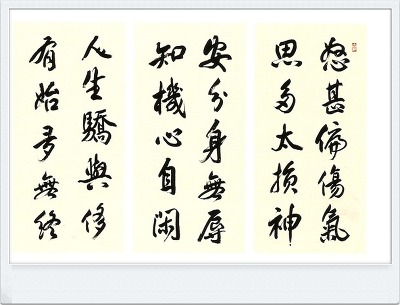 怒甚偏傷氣
思多太損神
安分身無辱
知機心自閑
人生驕與侈
有始多無終